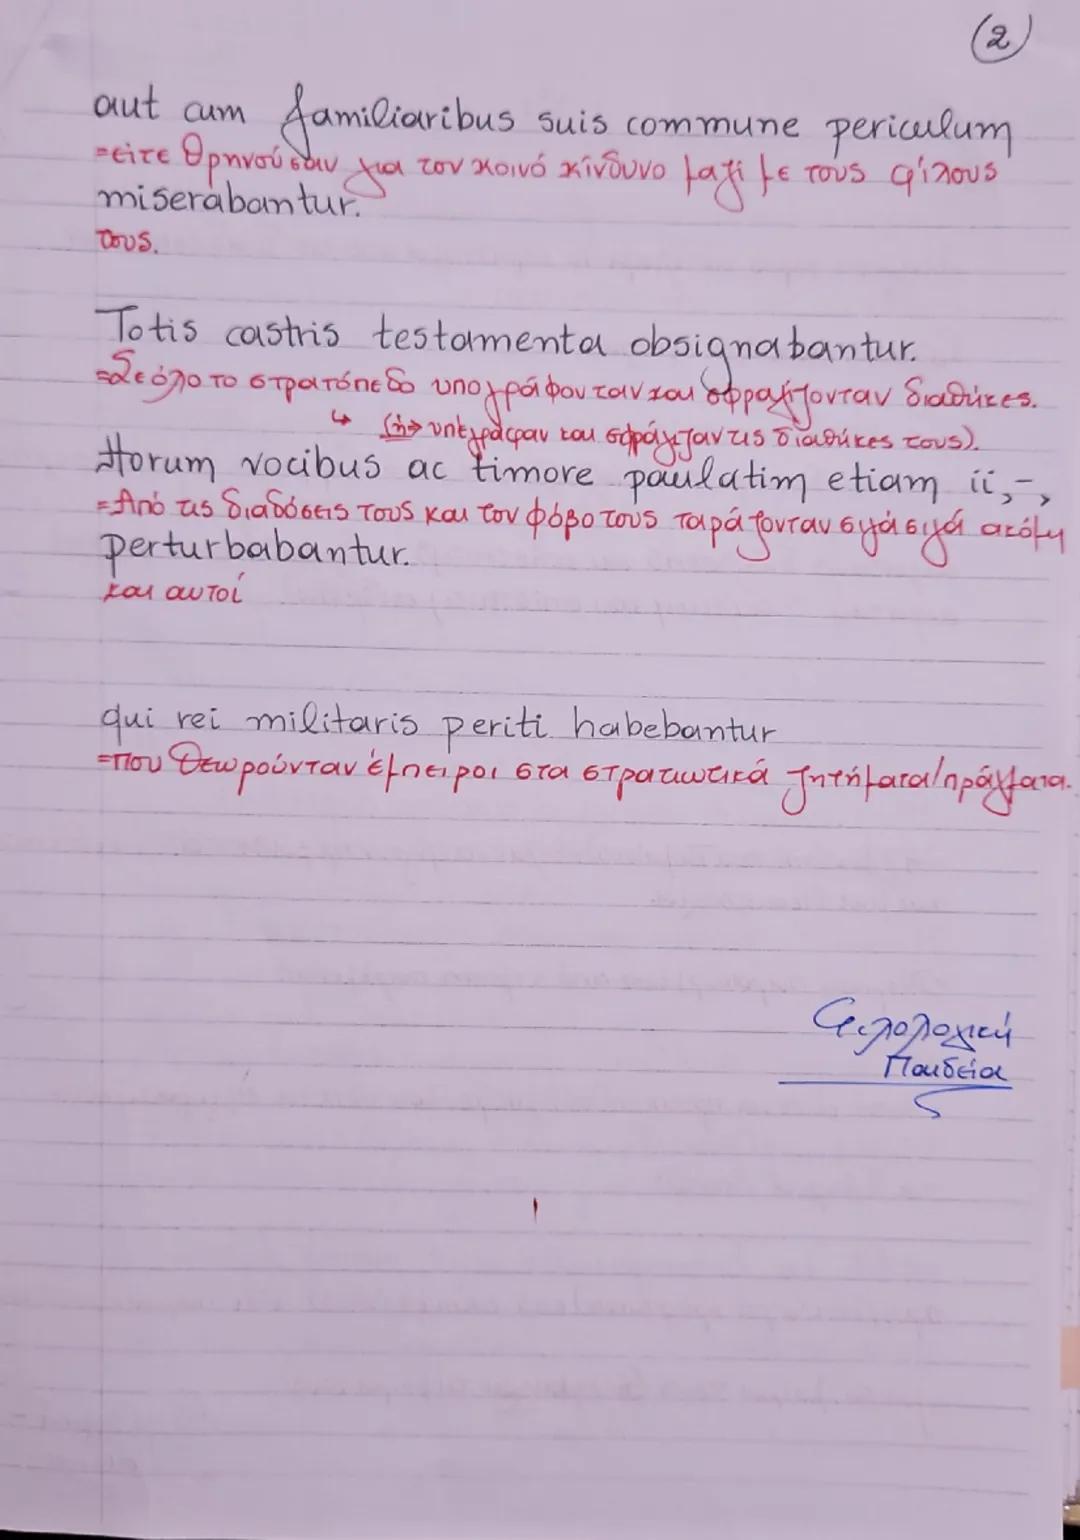 (2)
aut cum familiaribus suis commune periculum
=είτε θρηνούσαν για τον κοινό κίνδυνο μαζί με τους φίλους
miserabantur.
τους.
Totis castris testamenta obsignabantur.
=Σε όλο το στρατόπεδο υπογράφονταν και σφραγίζονταν διαθήκες.
↳ (ή→ υπέγραφαν και σφράγιζαν τις διαθήκες τους).
Horum vocibus ac timore paulatim etiam ii,-,
=Από τις διαδόσεις τους και τον φόβο τους ταράζονταν σιγά σιγά ακόμη
perturbabantur.
και αυτοί
qui rei militaris periti habebantur
=που θεωρούνταν έμπειροι στα στρατιωτικά ζητήματα/πράγματα.
Φιλολογική
Παιδεία